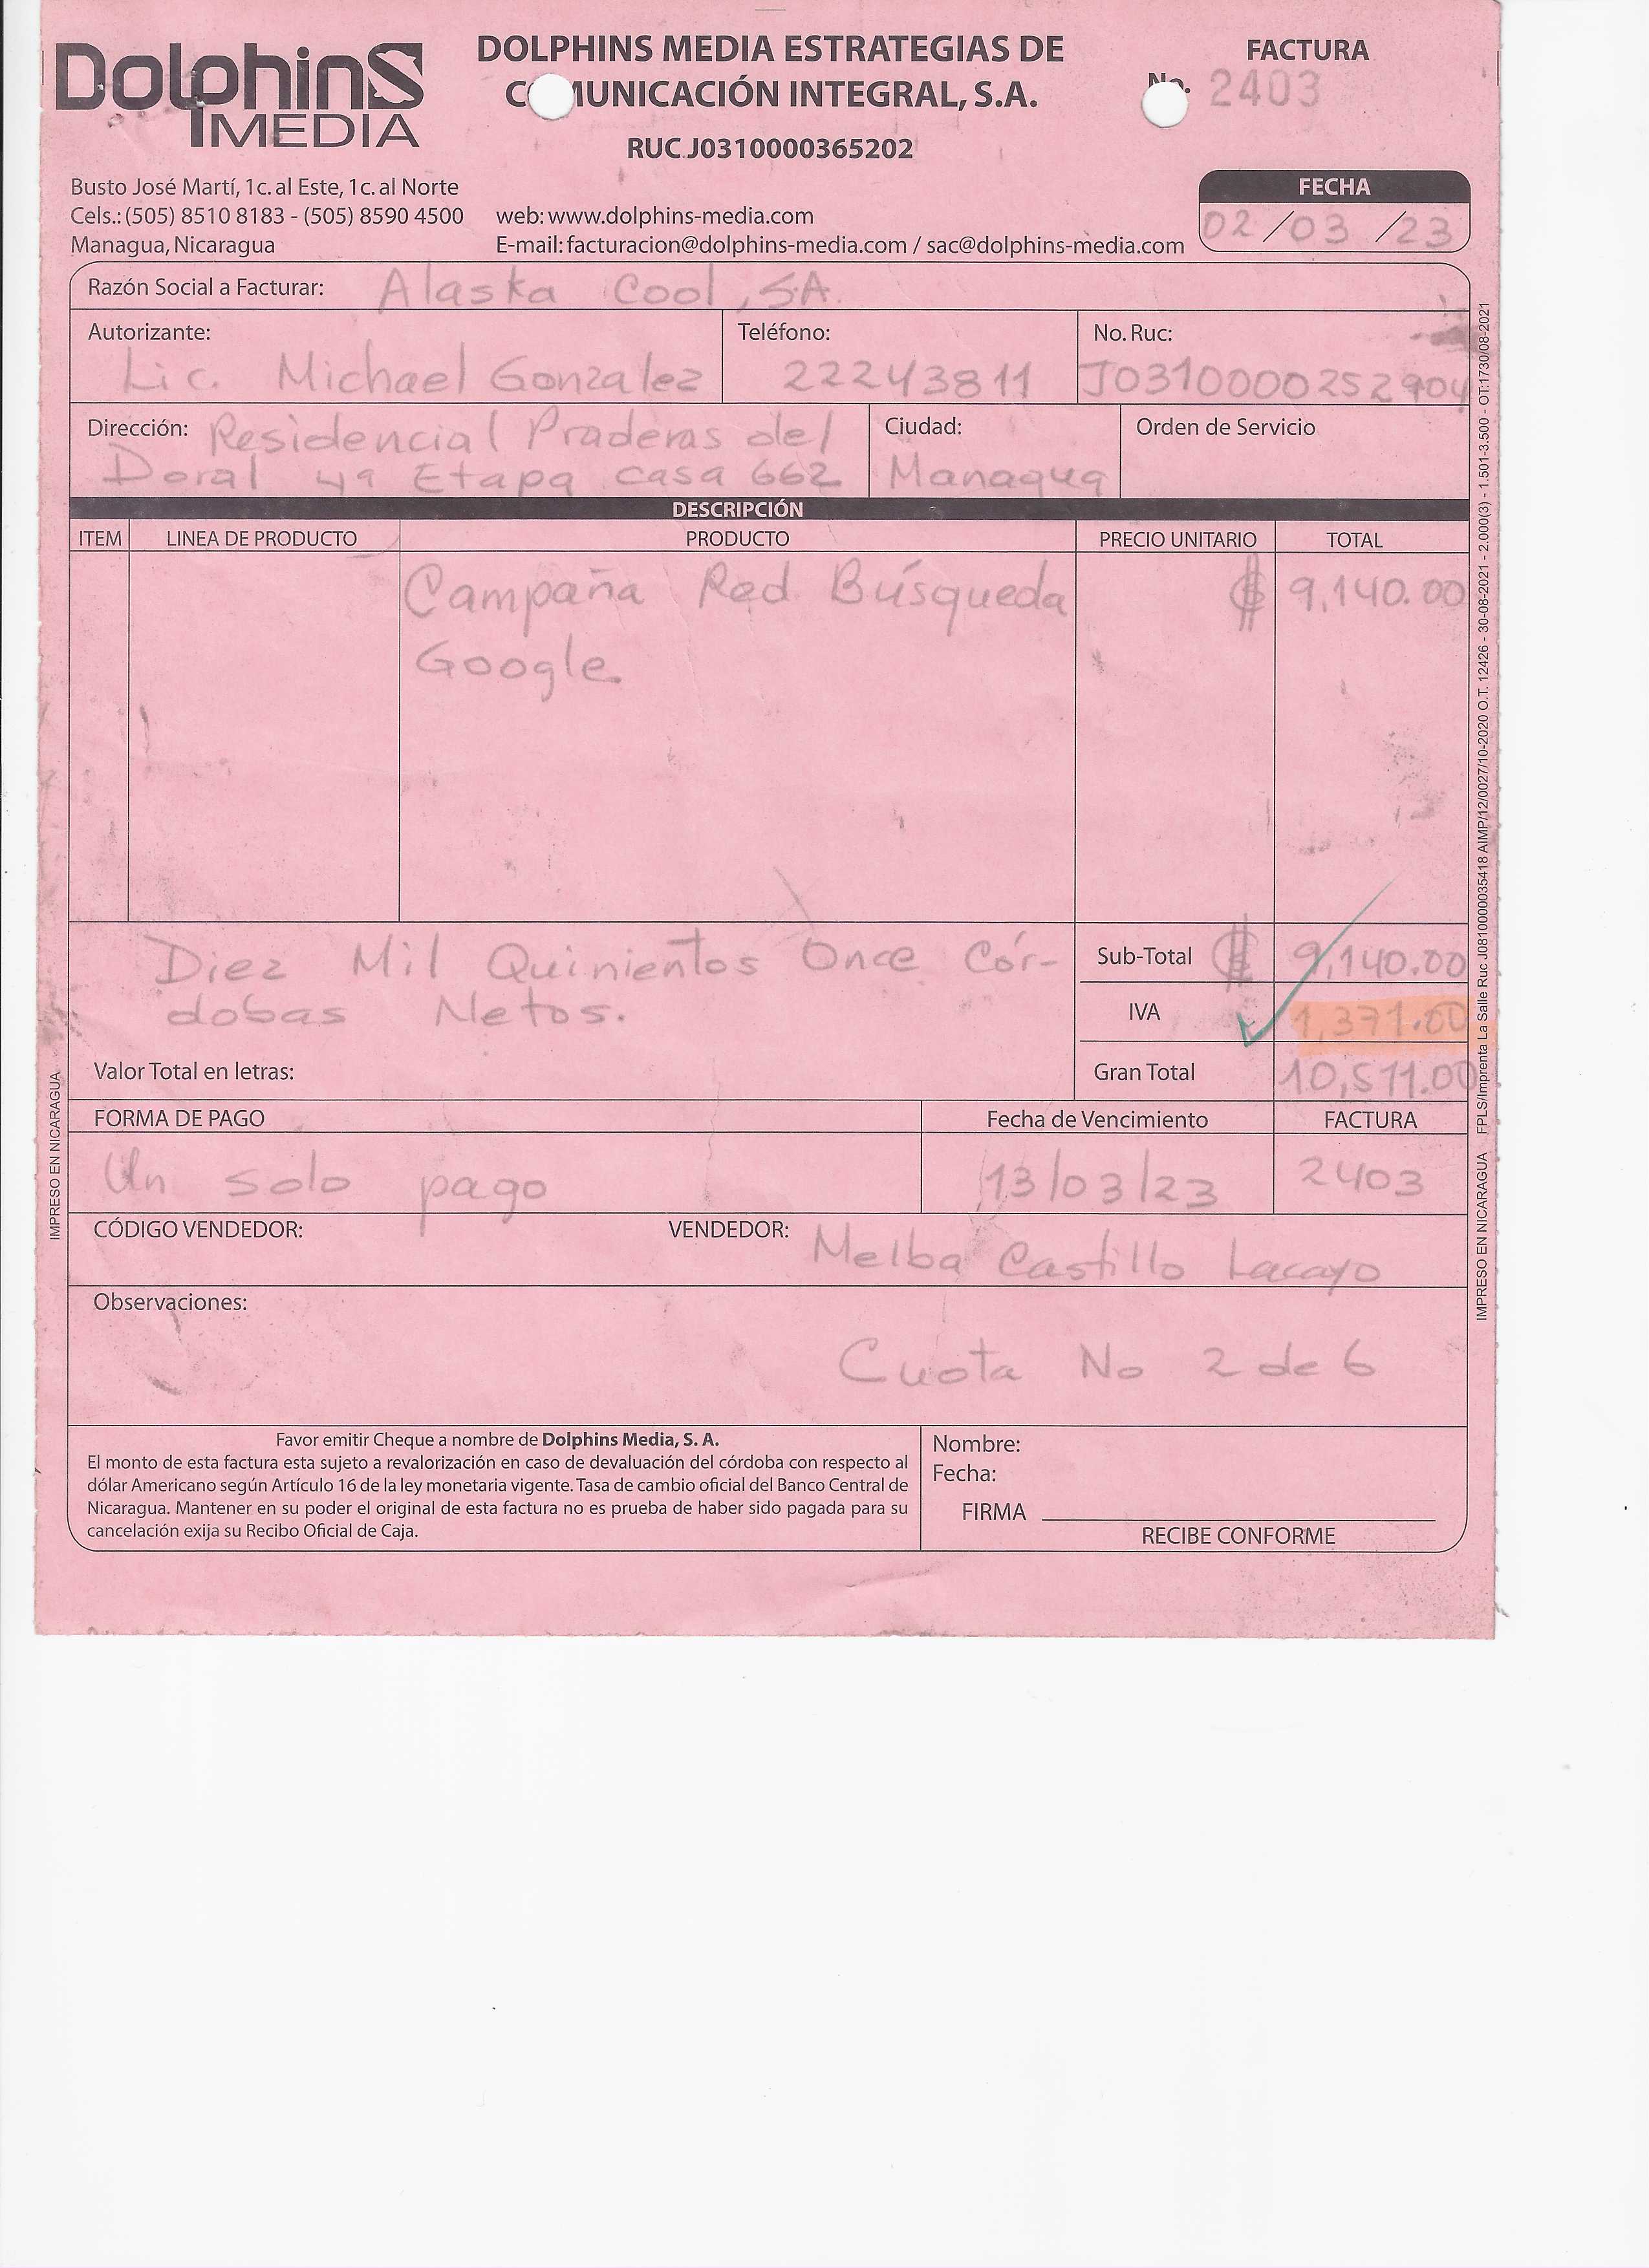 Dolphins
MEDIA
DOLPHINS MEDIA ESTRATEGIAS DE
COMUNICACIÓN INTEGRAL, S.A.
RUC J0310000365202
FACTURA
No. 2403
Busto José Martí, 1c. al Este, 1c. al Norte
Cels.: (505) 8510 8183 - (505) 8590 4500
Managua, Nicaragua
web: www.dolphins-media.com
E-mail: facturacion@dolphins-media.com / sac@dolphins-media.com
FECHA
02/03/23
Razón Social a Facturar: Alaska Cool, S.A.
Autorizante: Teléfono: No. Ruc:
Lic. Michael Gonzalez 22243811 J0310000252904
Dirección: Residencial Praderas del Ciudad: Orden de Servicio
Doral 4ª Etapa casa 662 Managua
DESCRIPCIÓN
ITEM LINEA DE PRODUCTO PRODUCTO PRECIO UNITARIO TOTAL
Campaña Red Búsqueda ₡ 9,140.00
Google
Diez Mil Quinientos Once Cór- Sub-Total ₡ 9,140.00
dobas Netos. IVA 1,371.00
Valor Total en letras: Gran Total 10,511.00
FORMA DE PAGO Fecha de Vencimiento FACTURA
Un solo pago 13/03/23 2403
CÓDIGO VENDEDOR: VENDEDOR: Melba Castillo Lacayo
Observaciones:
Cuota No 2 de 6
Favor emitir Cheque a nombre de Dolphins Media, S. A.
El monto de esta factura esta sujeto a revalorización en caso de devaluación del córdoba con respecto al
dólar Americano según Artículo 16 de la ley monetaria vigente. Tasa de cambio oficial del Banco Central de
Nicaragua. Mantener en su poder el original de esta factura no es prueba de haber sido pagada para su
cancelación exija su Recibo Oficial de Caja.
Nombre:
Fecha:
FIRMA
RECIBE CONFORME
IMPRESO EN NICARAGUA
IMPRESO EN NICARAGUA FPLS/Imprenta La Salle Ruc J0810000035418 AIMP/12/0027/10-2020 O.T. 12426 - 30-08-2021 - 2.000(3) - 1.501-3.500 - OT:1730/08-2021